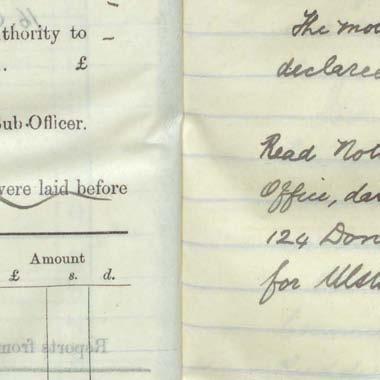 thority to
.. £
Sub-Officer.
were laid before
Amount
£ s. d.
Reports from
The mo
declared
Read Not
Office, da
124 Don
for Ulst